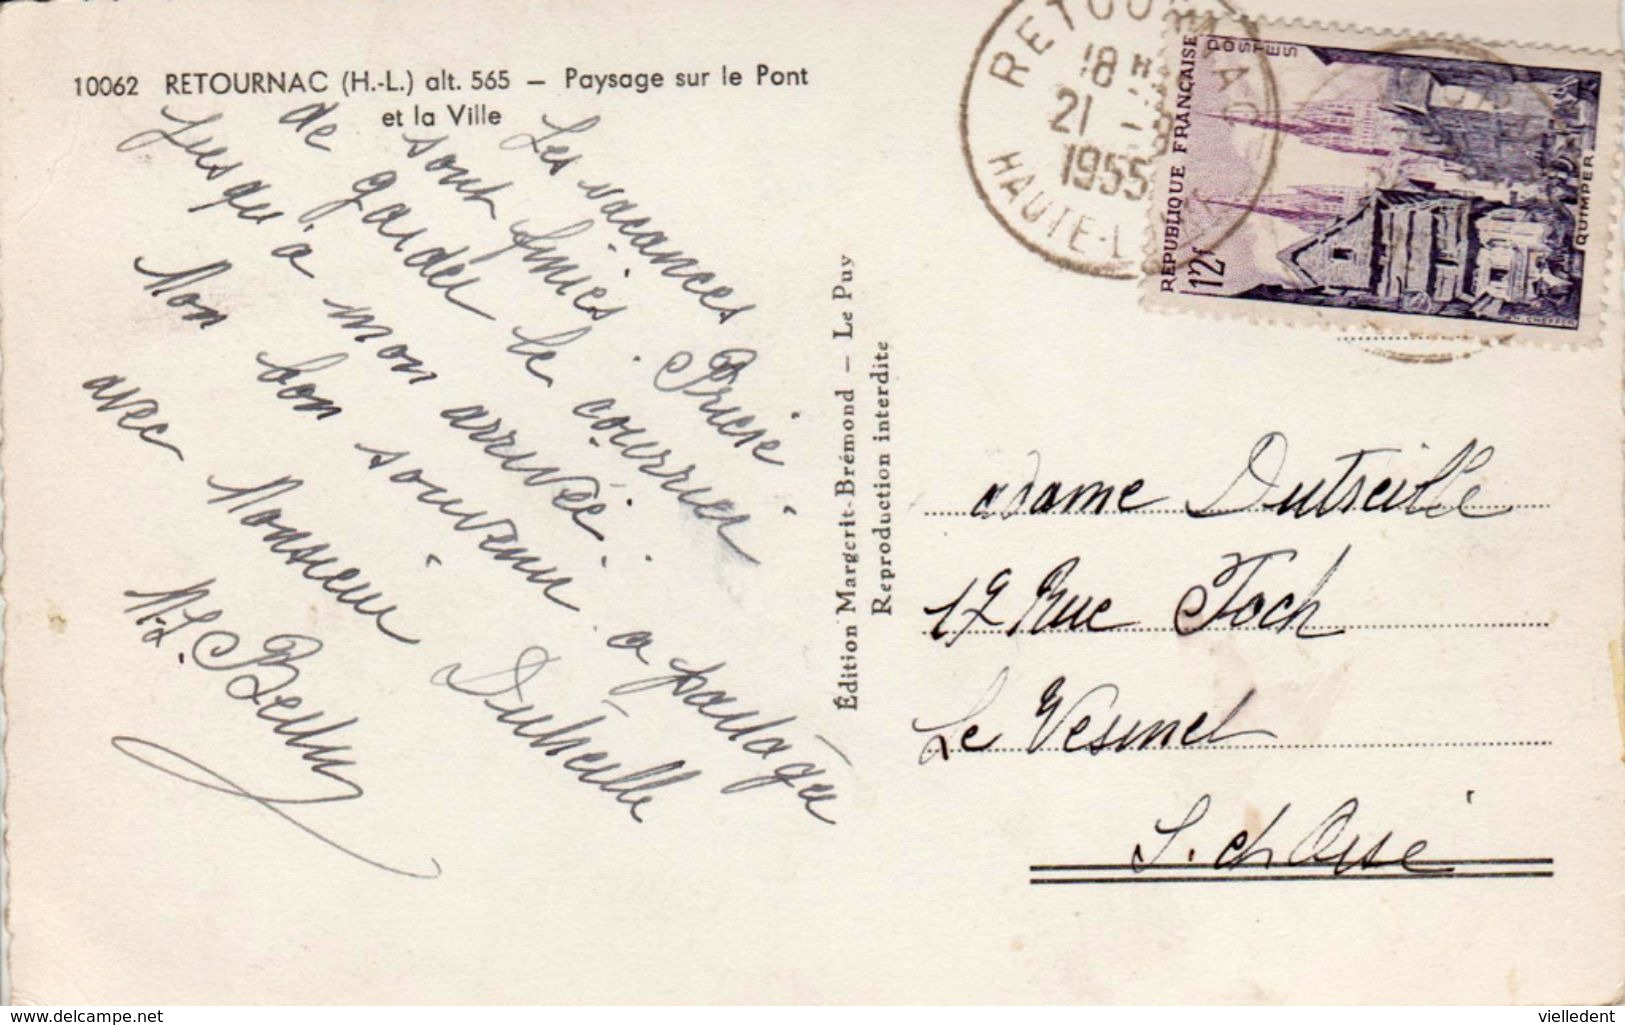 10062 RETOURNAC (H.-L.) alt. 565 — Paysage sur le Pont
et la Ville
Les vacances
sont finies. Prière
de garder le courrier
jusqu'à mon arrivée.
Mon bon souvenir a partager
avec Monsieur Dutseille
M.L.
Édition Margerit-Brémond — Le Puy
Reproduction interdite
RETOURNAC
18 H
21 -
1955
HAUTE-L
RÉPUBLIQUE FRANÇAISE
POSTES
12f
QUIMPER
H. CHEFFER
adame Dutseille
17 Rue Foch
Le Vesinet
S. et Oise
www.delcampe.net
vielledent